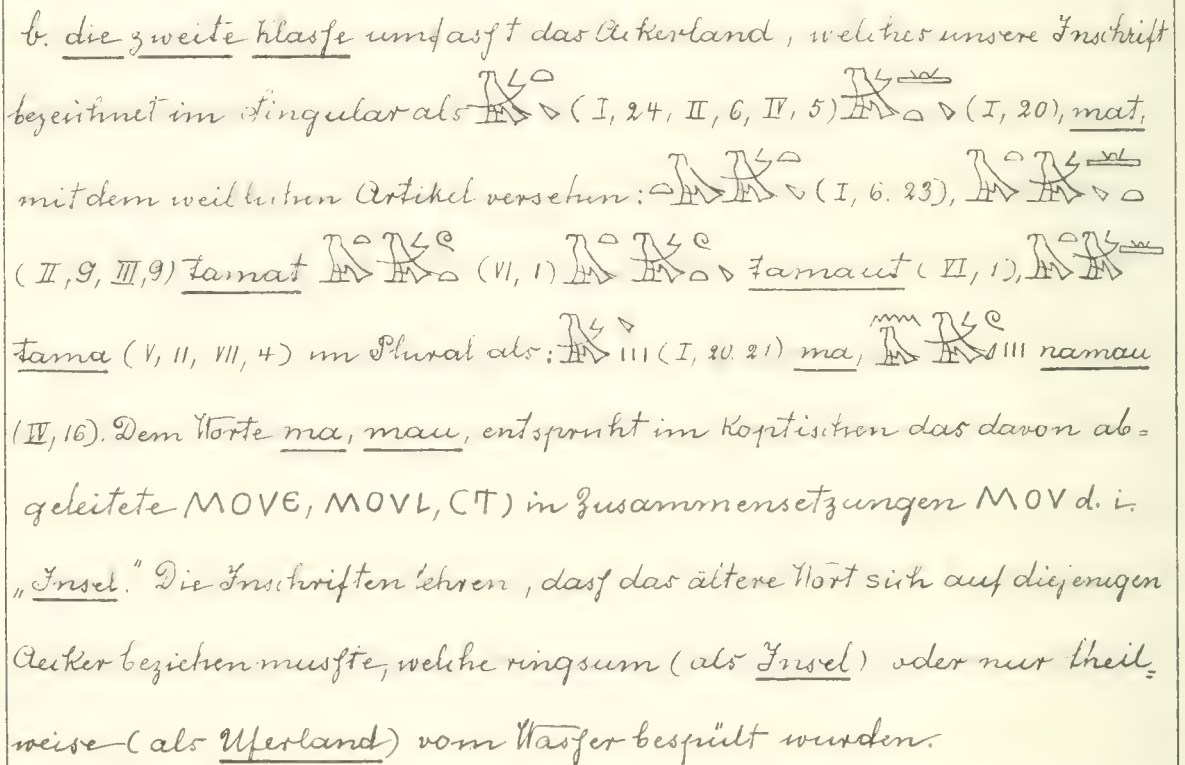 b. die zweite Klasse umfasst das Ackerland, welches unsere Inschrift
bezeichnet im Singular als (I, 24, II, 6, IV, 5) (I, 20), mat,
mit dem weiblichen Artikel versehen: (I, 6. 23),
(II, 9, III, 9) tamat (VI, 1) tamaut (VI, 1),
tama (V, 11, VII, 4) im Plural als: (I, 20. 21) ma, namau
(IV, 16). Dem Worte ma, mau, entspricht im Koptischen das davon ab=
geleitete ⲙⲟⲩⲉ, ⲙⲟⲩⲓ, (Ⲧ) in Zusammensetzungen ⲙⲟⲩ d. i.
„Insel." Die Inschriften lehren, dass das ältere Wort sich auf diejenigen
Aecker beziehen musste, welche ringsum (als Insel) oder nur theil=
weise (als Uferland) vom Wasser bespült wurden.